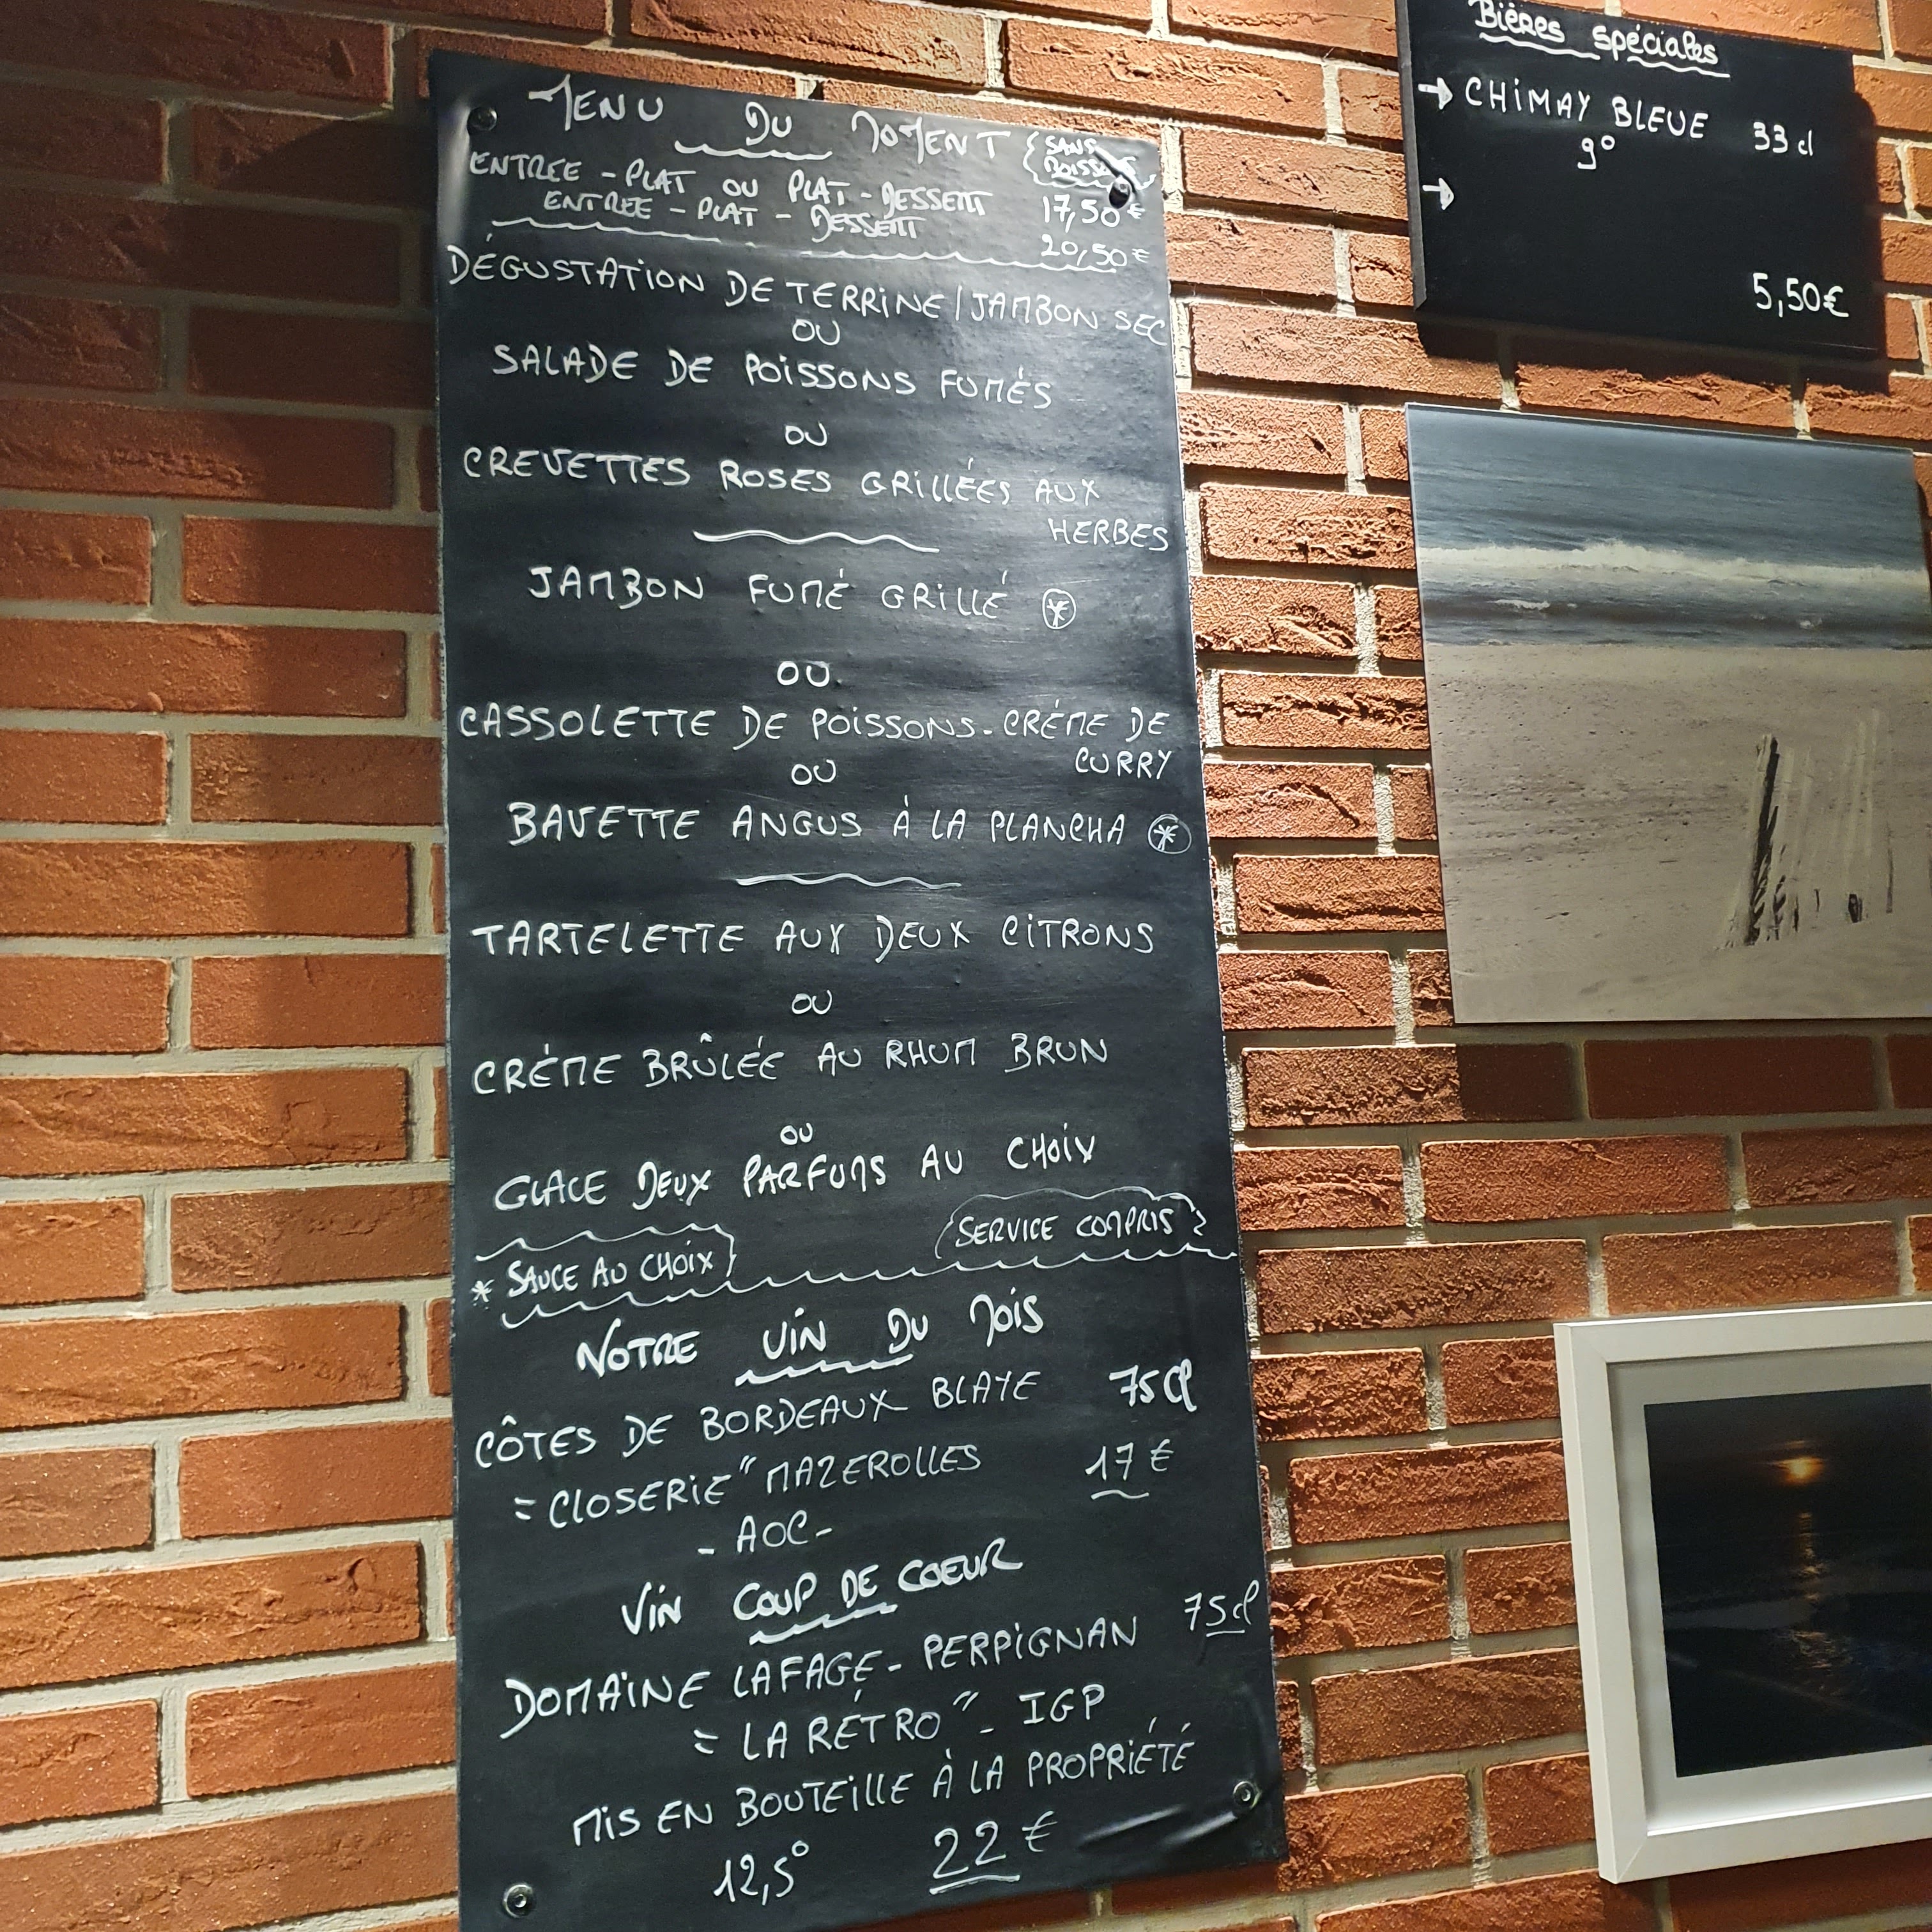 MENU DU MOMENT
{SANS BOISSONS
ENTREE - PLAT OU PLAT - DESSERT 17,50€
ENTREE - PLAT - DESSERT 20,50€
DÉGUSTATION DE TERRINE / JAMBON SEC
OU
SALADE DE POISSONS FUMÉS
OU
CREVETTES ROSES GRILLÉES AUX
HERBES
JAMBON FUMÉ GRILLÉ *
OU
CASSOLETTE DE POISSONS - CRÉME DE
CURRY
OU
BAVETTE ANGUS À LA PLANCHA *
TARTELETTE AUX DEUX CITRONS
OU
CRÉME BRÛLÉE AU RHUM BRUN
OU
GLACE DEUX PARFUMS AU CHOIX
SERVICE COMPRIS
* SAUCE AU CHOIX
NOTRE VIN DU MOIS
CÔTES DE BORDEAUX BLAYE 75Cl
= CLOSERIE" MAZEROLLES 17€
- AOC -
VIN COUP DE COEUR
DOMAINE LAFAGE - PERPIGNAN 75cl
= LA RÉTRO" - IGP
MIS EN BOUTEILLE À LA PROPRIÉTÉ
12,5° 22€
Bières spéciales
→ CHIMAY BLEUE 33 cl
9°
→
5,50€